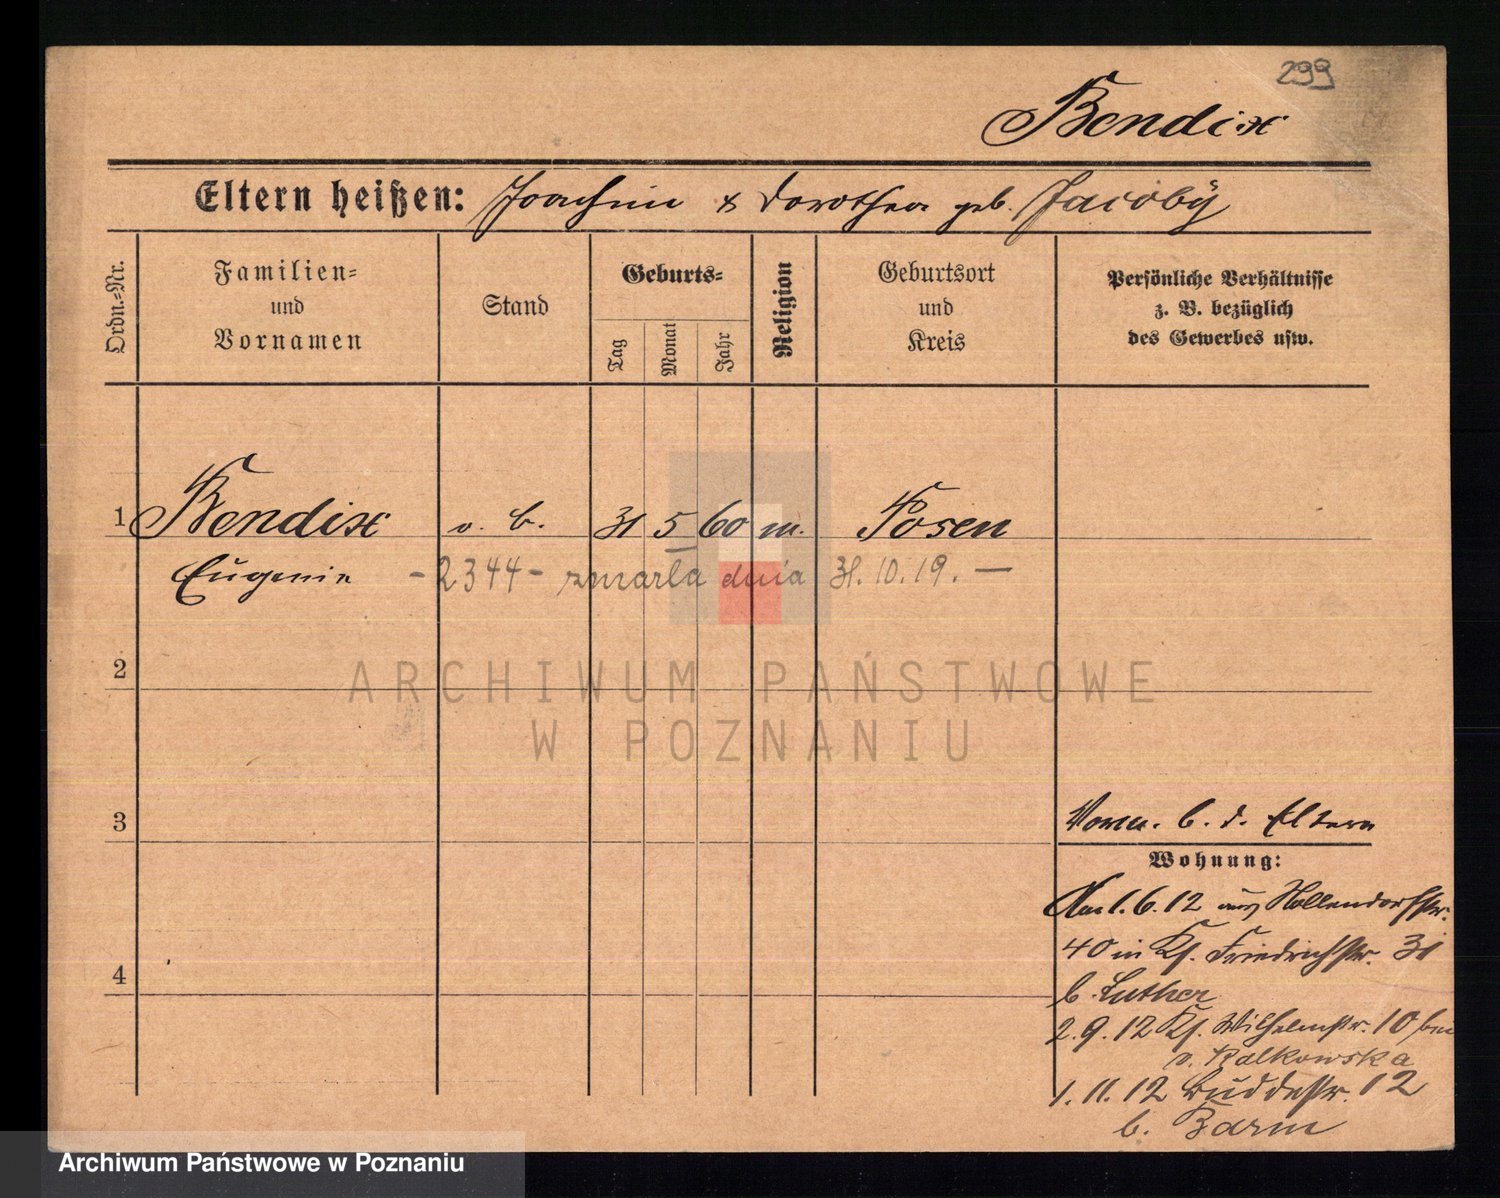 299
Bendix
Eltern heißen: Joachim & Dorothea geb. Jacoby
Ordn.-Nr.
Familien-
und
Vornamen
Stand
Geburts-
Tag
Monat
Jahr
Religion
Geburtsort
und
Kreis
Persönliche Verhältnisse
z. B. bezüglich
des Gewerbes usw.
1 Bendix o. B. 31 5 60 m. Posen
Eugenie - 2344 - zmarła dnia 31.10.19. —
2
ARCHIWUM PAŃSTWOWE
W POZNANIU
3
b. d. Eltern
Wohnung:
Am 1.6.12 aus Hollendorfstr.
40 in Kf. Friedrichstr. 31
4
b. Luther
2.9.12 Kf. Wilhelmstr. 10 bei
v. Kalkowska
1.11.12 Buddestr. 12
b.
Archiwum Państwowe w Poznaniu